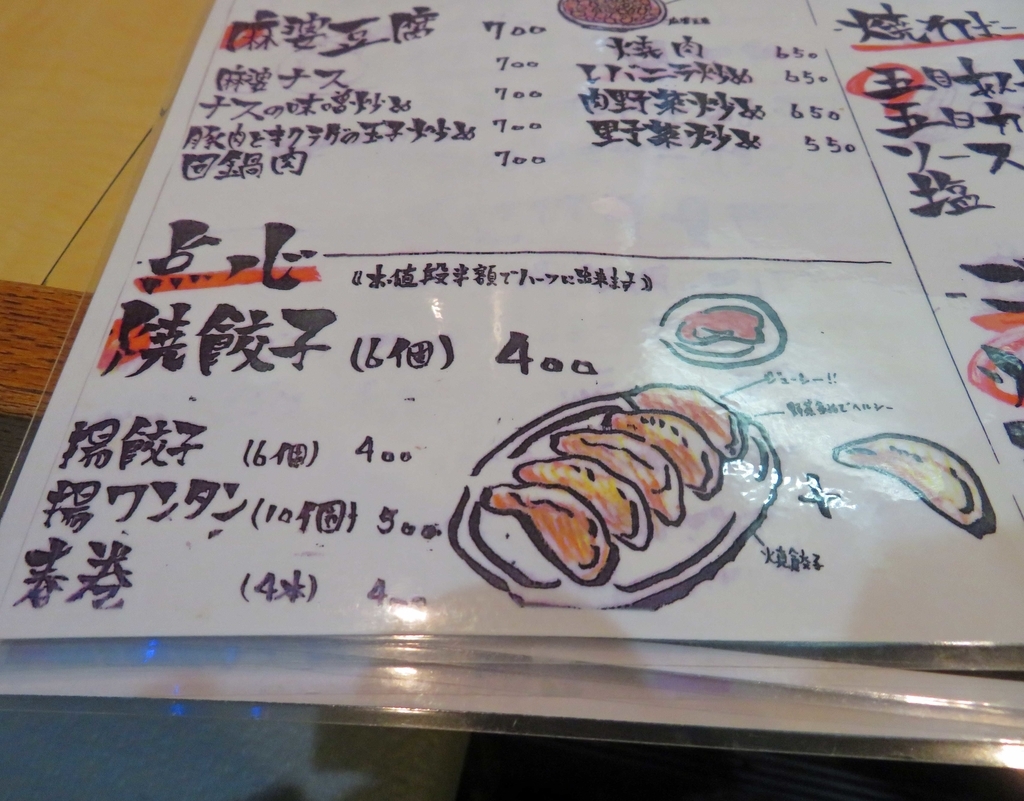 麻婆豆腐 700
麻婆ナス 700
ナスの味噌炒め 700
豚肉とキクラゲの玉子炒め 700
回鍋肉 700
焼肉 650
レバニラ炒め 650
肉野菜炒め 650
野菜炒め 550
焼そば
五目
五目
ソース
塩
点心
《お値段半額でハーフに出来ます》
焼餃子 (6個) 400
ジューシー!!
野菜多めでヘルシー
揚餃子 (6個) 400
揚ワンタン (10個) 500
春巻 (4本) 400
+
焼餃子